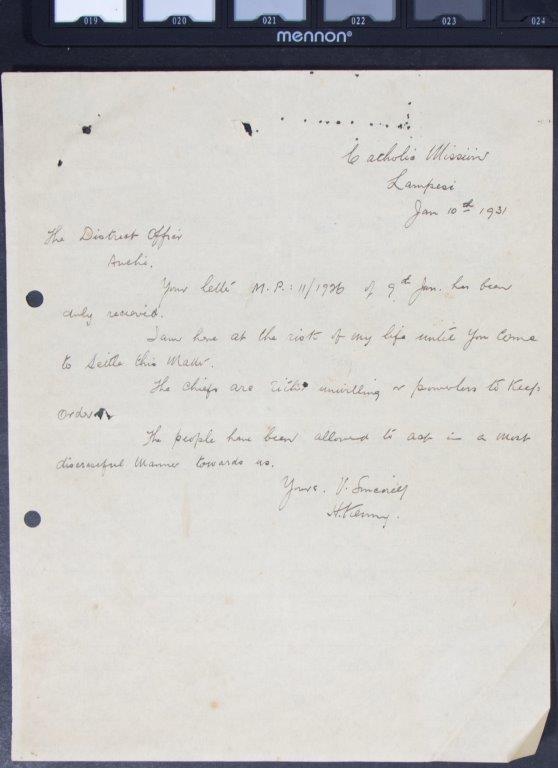 019 020 021 022 023 024
mennon®
Catholic Mission
Lampesi
Jan 10th 1931
The District Officer
Auchi.
Your letter M.P.: 11/1926 of 9th Jan. has been
duly recieved.
I am here at the risk of my life until you come
to settle this Matter.
The chiefs are either unwilling or powerless to keep
order
The people have been allowed to act in a most
disgraceful manner towards us.
Yours. V. Sincerely
H. Kenny.